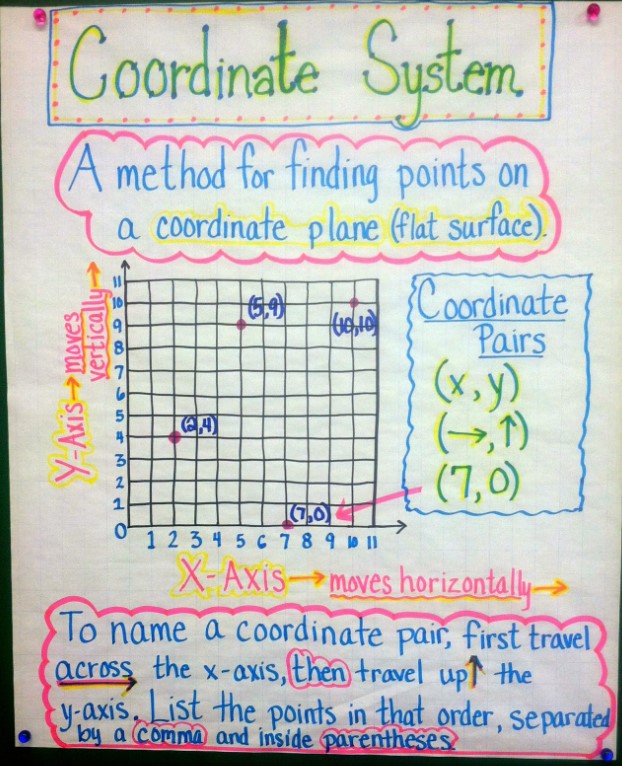 Coordinate System
A method for finding points on
a coordinate plane (flat surface).
Y-Axis→moves
vertically→
11
10
9
8
7
6
5
4
3
2
1
0
(5,9)
(10,10)
(2,4)
(7,0)
1 2 3 4 5 6 7 8 9 10 11
X-Axis→moves horizontally→
Coordinate
Pairs
(x, y)
(→,↑)
(7,0)
To name a coordinate pair, first travel
across the x-axis, then travel up↑ the
y-axis. List the points in that order, separated
by a comma and inside parentheses.